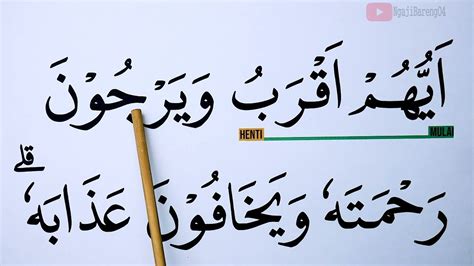 NgajiBareng04
اَيُّهُمْ اَقْرَبُ وَيَرْجُوْنَ
HENTI MULAI
رَحْمَتَهٗ وَيَخَافُوْنَ عَذَابَهٗ ۗ